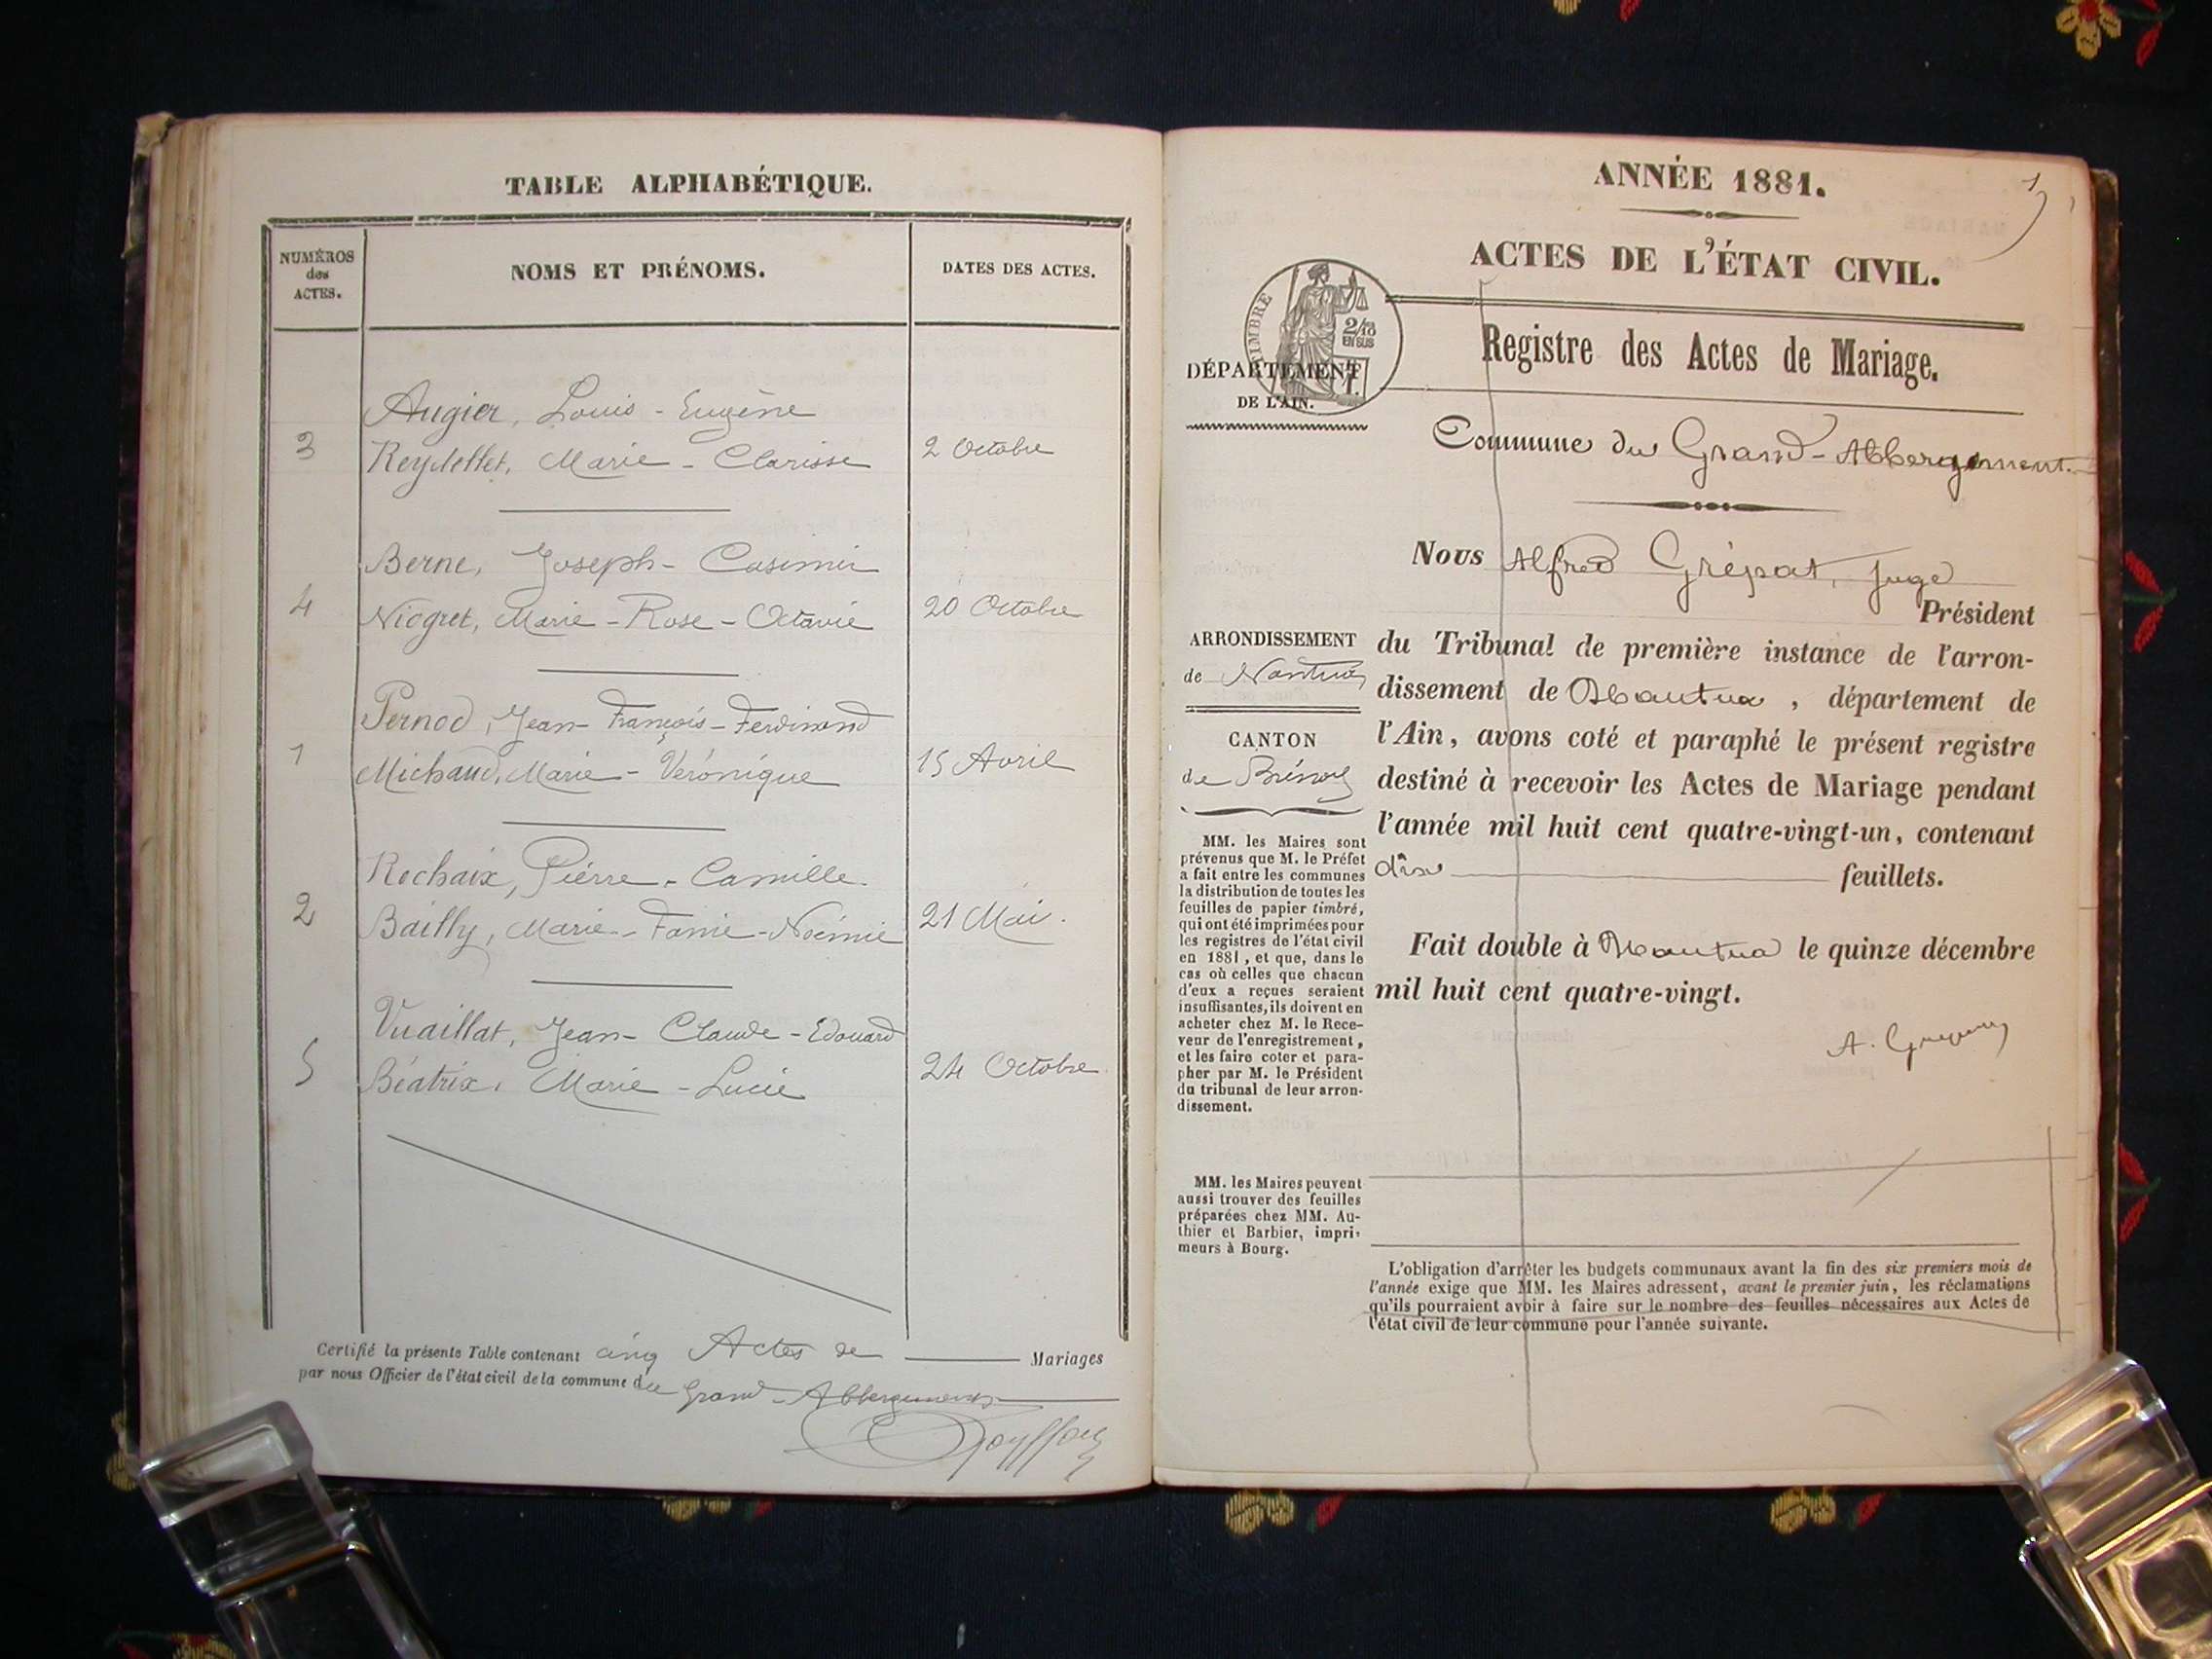 TABLE ALPHABÉTIQUE.
NUMÉROS
des
ACTES.
NOMS ET PRÉNOMS.
DATES DES ACTES.
Augier, Louis - Eugène
3 Reydellet, Marie - Clarisse 2 Octobre
Berne, Joseph - Casimir
4 Niogret, Marie - Rose - Octavie 20 Octobre
Pernod, Jean - François - Ferdinand
1 Michaud, Marie - Véronique 15 Avril
Rochaix, Pierre - Camille.
2 Bailly, Marie - Fanie - Noémie 21 Mai.
Vuaillat, Jean - Claude - Edouard
5 Béatrix, Marie - Lucie 24 Octobre.
Certifié la présente Table contenant cinq Actes de Mariages
par nous Officier de l'état civil de la commune du Grand - Abbergement
1
ANNÉE 1881.
ACTES DE L'ÉTAT CIVIL.
TIMBRE
2/10
EN SUS
Registre des Actes de Mariage.
DÉPARTEMENT
DE L'AIN.
Commune du Grand - Abbergement.
Nous Alfred Grépat, juge
Président
du Tribunal de première instance de l'arron-
dissement de Nantua, département de
l'Ain, avons coté et paraphé le présent registre
destiné à recevoir les Actes de Mariage pendant
l'année mil huit cent quatre-vingt-un, contenant
dix feuillets.
Fait double à Nantua le quinze décembre
mil huit cent quatre-vingt.
ARRONDISSEMENT
de Nantua
CANTON
de Brénod
MM. les Maires sont
prévenus que M. le Préfet
a fait entre les communes
la distribution de toutes les
feuilles de papier timbré,
qui ont été imprimées pour
les registres de l'état civil
en 1881, et que, dans le
cas où celles que chacun
d'eux a reçues seraient
insuffisantes, ils doivent en
acheter chez M. le Rece-
veur de l'enregistrement,
et les faire coter et para-
pher par M. le Président
du tribunal de leur arron-
dissement.
MM. les Maires peuvent
aussi trouver des feuilles
préparées chez MM. Au-
thier et Barbier, impri-
meurs à Bourg.
L'obligation d'arrêter les budgets communaux avant la fin des six premiers mois de
l'année exige que MM. les Maires adressent, avant le premier juin, les réclamations
qu'ils pourraient avoir à faire sur le nombre des feuilles nécessaires aux Actes de
l'état civil de leur commune pour l'année suivante.